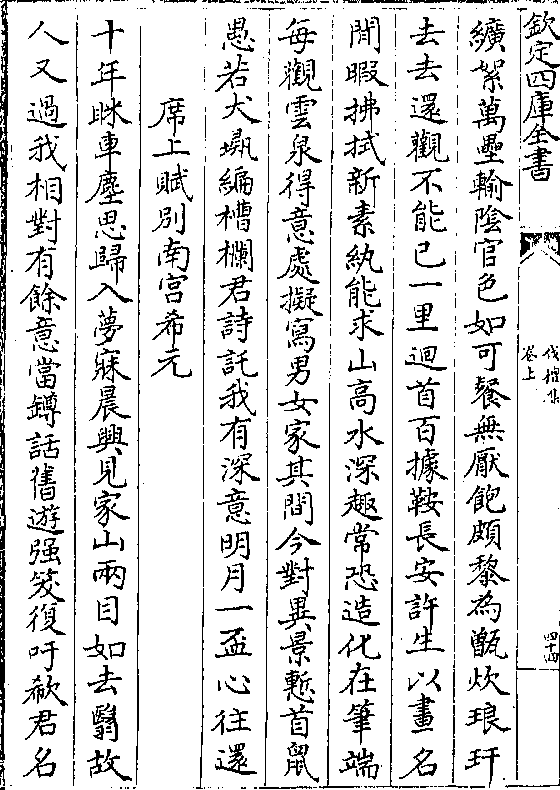 欽定四庫全書
伐檀集
卷上
四十四
纊絮萬壘輸陰官色如可餐無厭飽頗黎為甑炊琅玕
去去還觀不能已一里迴首百據鞍長安許生以畫名
閒暇拂拭新素紈能求山高水深趣常恐造化在筆端
每觀雲泉得意處擬寫男女家其間今對異景慙首鼠
愚若犬㼋編槽欄君詩託我有深意明月一盃心往還
席上賦別南宫希元
十年眯車塵思歸入夢寐晨興見家山兩目如去翳故
人又過我相對有餘意當罇話舊遊强笑復吁欷君名